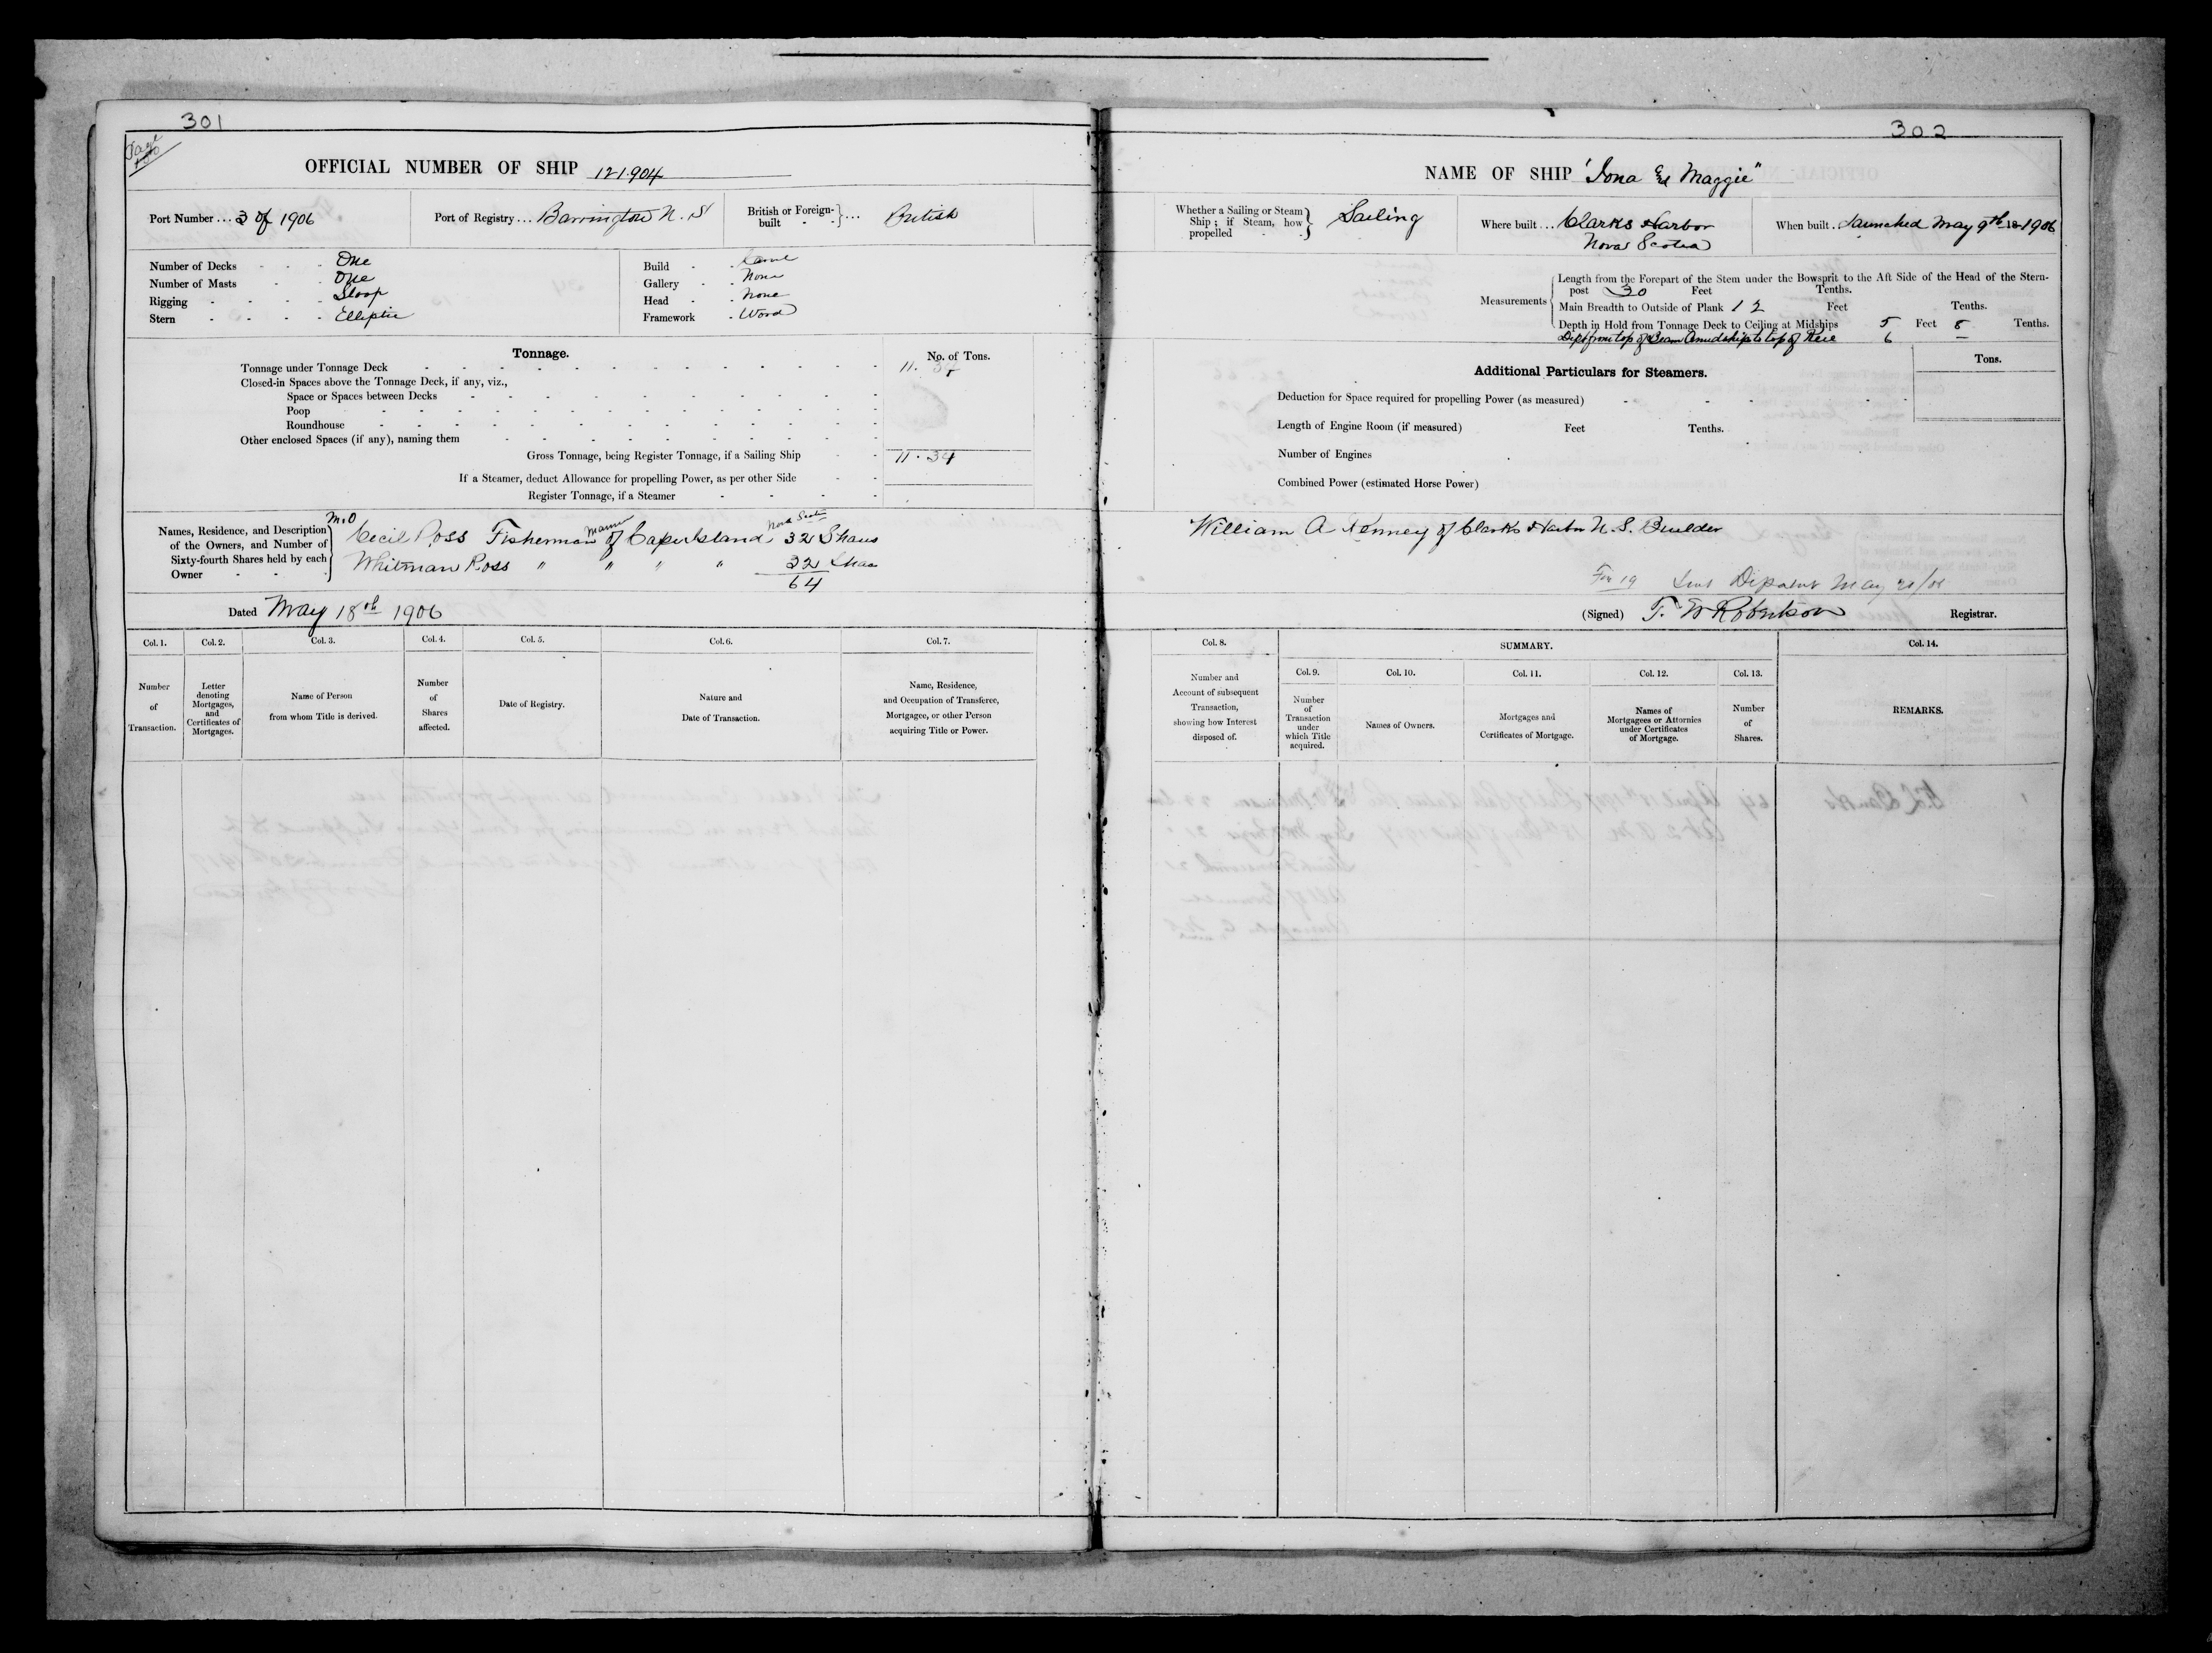 301
OFFICIAL NUMBER OF SHIP 121.904
Port Number ... 3 of 1906
Port of Registry ... Barrington N.S
British or Foreign-built ... British
Number of Decks One
Number of Masts One
Rigging Sloop
Stern Elliptic
Build
Gallery None
Head None
Framework Wood
Tonnage.
No. of Tons.
Tonnage under Tonnage Deck 11. 34
Closed-in Spaces above the Tonnage Deck, if any, viz.,
Space or Spaces between Decks
Poop
Roundhouse
Other enclosed Spaces (if any), naming them
Gross Tonnage, being Register Tonnage, if a Sailing Ship 11. 34
If a Steamer, deduct Allowance for propelling Power, as per other Side
Register Tonnage, if a Steamer
Names, Residence, and Description
of the Owners, and Number of
Sixty-fourth Shares held by each
Owner
M.O
Cecil Ross Fisherman of Cape Island Nova Scotia 32 Shares
Whitman Ross " " " " 32 Shares
64
Dated May 18th 1906
Col. 1. Col. 2. Col. 3. Col. 4. Col. 5. Col. 6. Col. 7.
Number of Transaction.
Letter denoting Mortgages, and Certificates of Mortgages.
Name of Person from whom Title is derived.
Number of Shares affected.
Date of Registry.
Nature and Date of Transaction.
Name, Residence, and Occupation of Transferee, Mortgagee, or other Person acquiring Title or Power.
302
NAME OF SHIP "Iona & Maggie"
Whether a Sailing or Steam Ship; if Steam, how propelled Sailing
Where built ... Clarks Harbor
Nova Scotia
When built . Launched May 9th 18 1906
Measurements
Length from the Forepart of the Stem under the Bowsprit to the Aft Side of the Head of the Stern-
post 30 Feet Tenths.
Main Breadth to Outside of Plank 12 Feet Tenths.
Depth in Hold from Tonnage Deck to Ceiling at Midships 5 Feet 8 Tenths.
Dept from top of Beam Amidships to top of Keel 6 —
Additional Particulars for Steamers.
Tons.
Deduction for Space required for propelling Power (as measured)
Length of Engine Room (if measured) Feet Tenths.
Number of Engines
Combined Power (estimated Horse Power)
William A Kenney of Clarks Harbor N.S. Builder
For 19 Sent Dipatnt May 21/06
(Signed) T. W Robertson Registrar.
Col. 8.
Number and Account of subsequent Transaction, showing how Interest disposed of.
SUMMARY.
Col. 9. Col. 10. Col. 11. Col. 12. Col. 13.
Number of Transaction under which Title acquired.
Names of Owners.
Mortgages and Certificates of Mortgage.
Names of Mortgagees or Attornies under Certificates of Mortgage.
Number of Shares.
Col. 14.
REMARKS.